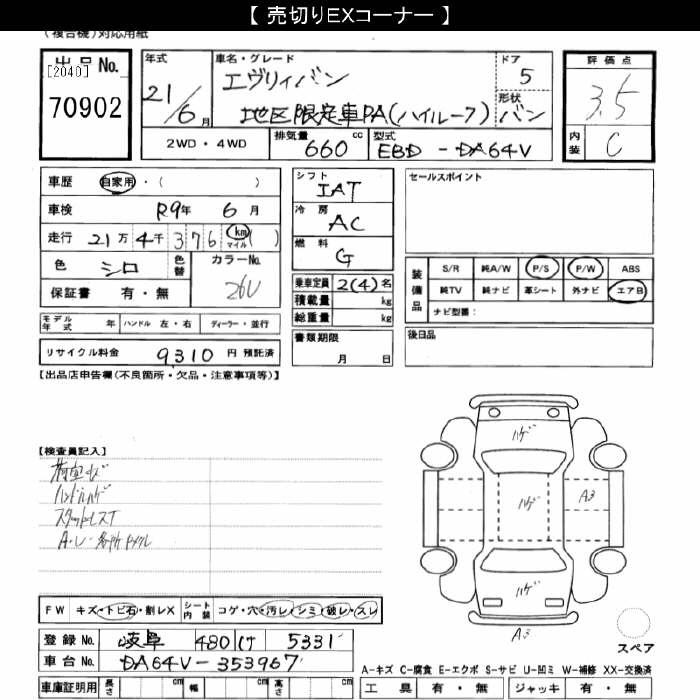 【 売切りEXコーナー 】
(複合機)対応用紙
出品No.
[2040]
70902
年式
21/6月
車名・グレード
エヴリィバン
地区限定車PA(ハイルーフ)
ドア
5
形状
バン
評価点
3.5
内装
C
2WD・4WD
排気量
660 cc
型式
EBD - DA64V
車歴 自家用・( )
車検 R9年 6月
走行 21万4千376 km マイル ( )
色 シロ 色替 カラーNo. 26U
保証書 有・無
シフト
IAT
冷房
AC
燃料
G
乗車定員 2(4)名
積載量 kg
総重量 kg
書類期限
月 日
セールスポイント
装備品
S/R 純A/W P/S P/W ABS
純TV 純ナビ 革シート 外ナビ エアB
ナビ型番:
後日品
モデル年式 年 ハンドル 左・右 ディーラー・並行
リサイクル料金 9310 円 預託済
【出品店申告欄(不良箇所・欠品・注意事項等)】
【検査員記入】
荷室キズ
ハンドルハゲ
スタッドレスT
A・U・各所トメクル
ハゲ
ハゲ
A3
ハゲ
A3
スペア
FW キズ・トビ石・割レX シート内装 コゲ・穴・汚レ・シミ・破レ・スレ
登録No. 岐阜 480 け 5331
車台No. DA64V-353967
車庫証明用 長さ cm 幅 cm 高さ cm
A-キズ C-腐食 E-エクボ S-サビ U-凹ミ W-補修 XX-交換済
工具 有・無 ジャッキ 有・無